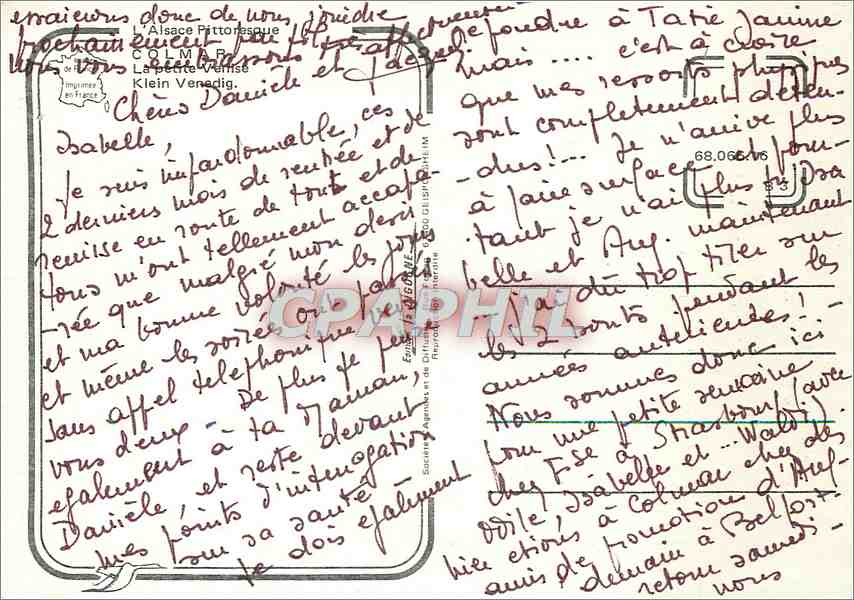 Chères Danièle et
Isabelle,
Je suis impardonnable, ces
2 derniers mois de rentrée et de
remise en route de tout et de
tous m'ont tellement accapa-
-rée que malgré mon désir
et ma bonne volonté les jours
et même les soirées ont passé
sans appel telephonique vers
vous deux - De plus je pense
egalement à ta Maman,
Danièle, et reste devant
mes points d'interrogation
sur sa santé -
Je dois également
répondre à Tatie Janine
mais .... c'est à croire
que mes ressorts physiques
sont completement déten-
-dus!... Je n'arrive plus
à faire surface et pour-
tant je n'ai plus Isa
belle et Aug. maintenant
... j'ai dû trop tirer sur
les 2 bouts pendant les
années antérieures! -
Nous sommes donc ici
pour une petite semaine
chez Fse à Strasbourg (avec
Odile, Isabelle et ... Waldi)
hier etions à Colmar chez des
amis de promotion d'Aug-
demain à Belfort-
retour samedi-
nous
essaierons donc de vous joindre
prochainement par tél
nous vous embrassons affectueusement
L'Alsace Pittoresque
COLMAR
La petite Venise
Klein Venedig.
Imprimée
en France
68.066.16
Editions "LA CIGOGNE"
Reproduction interdite
CPAPHIL